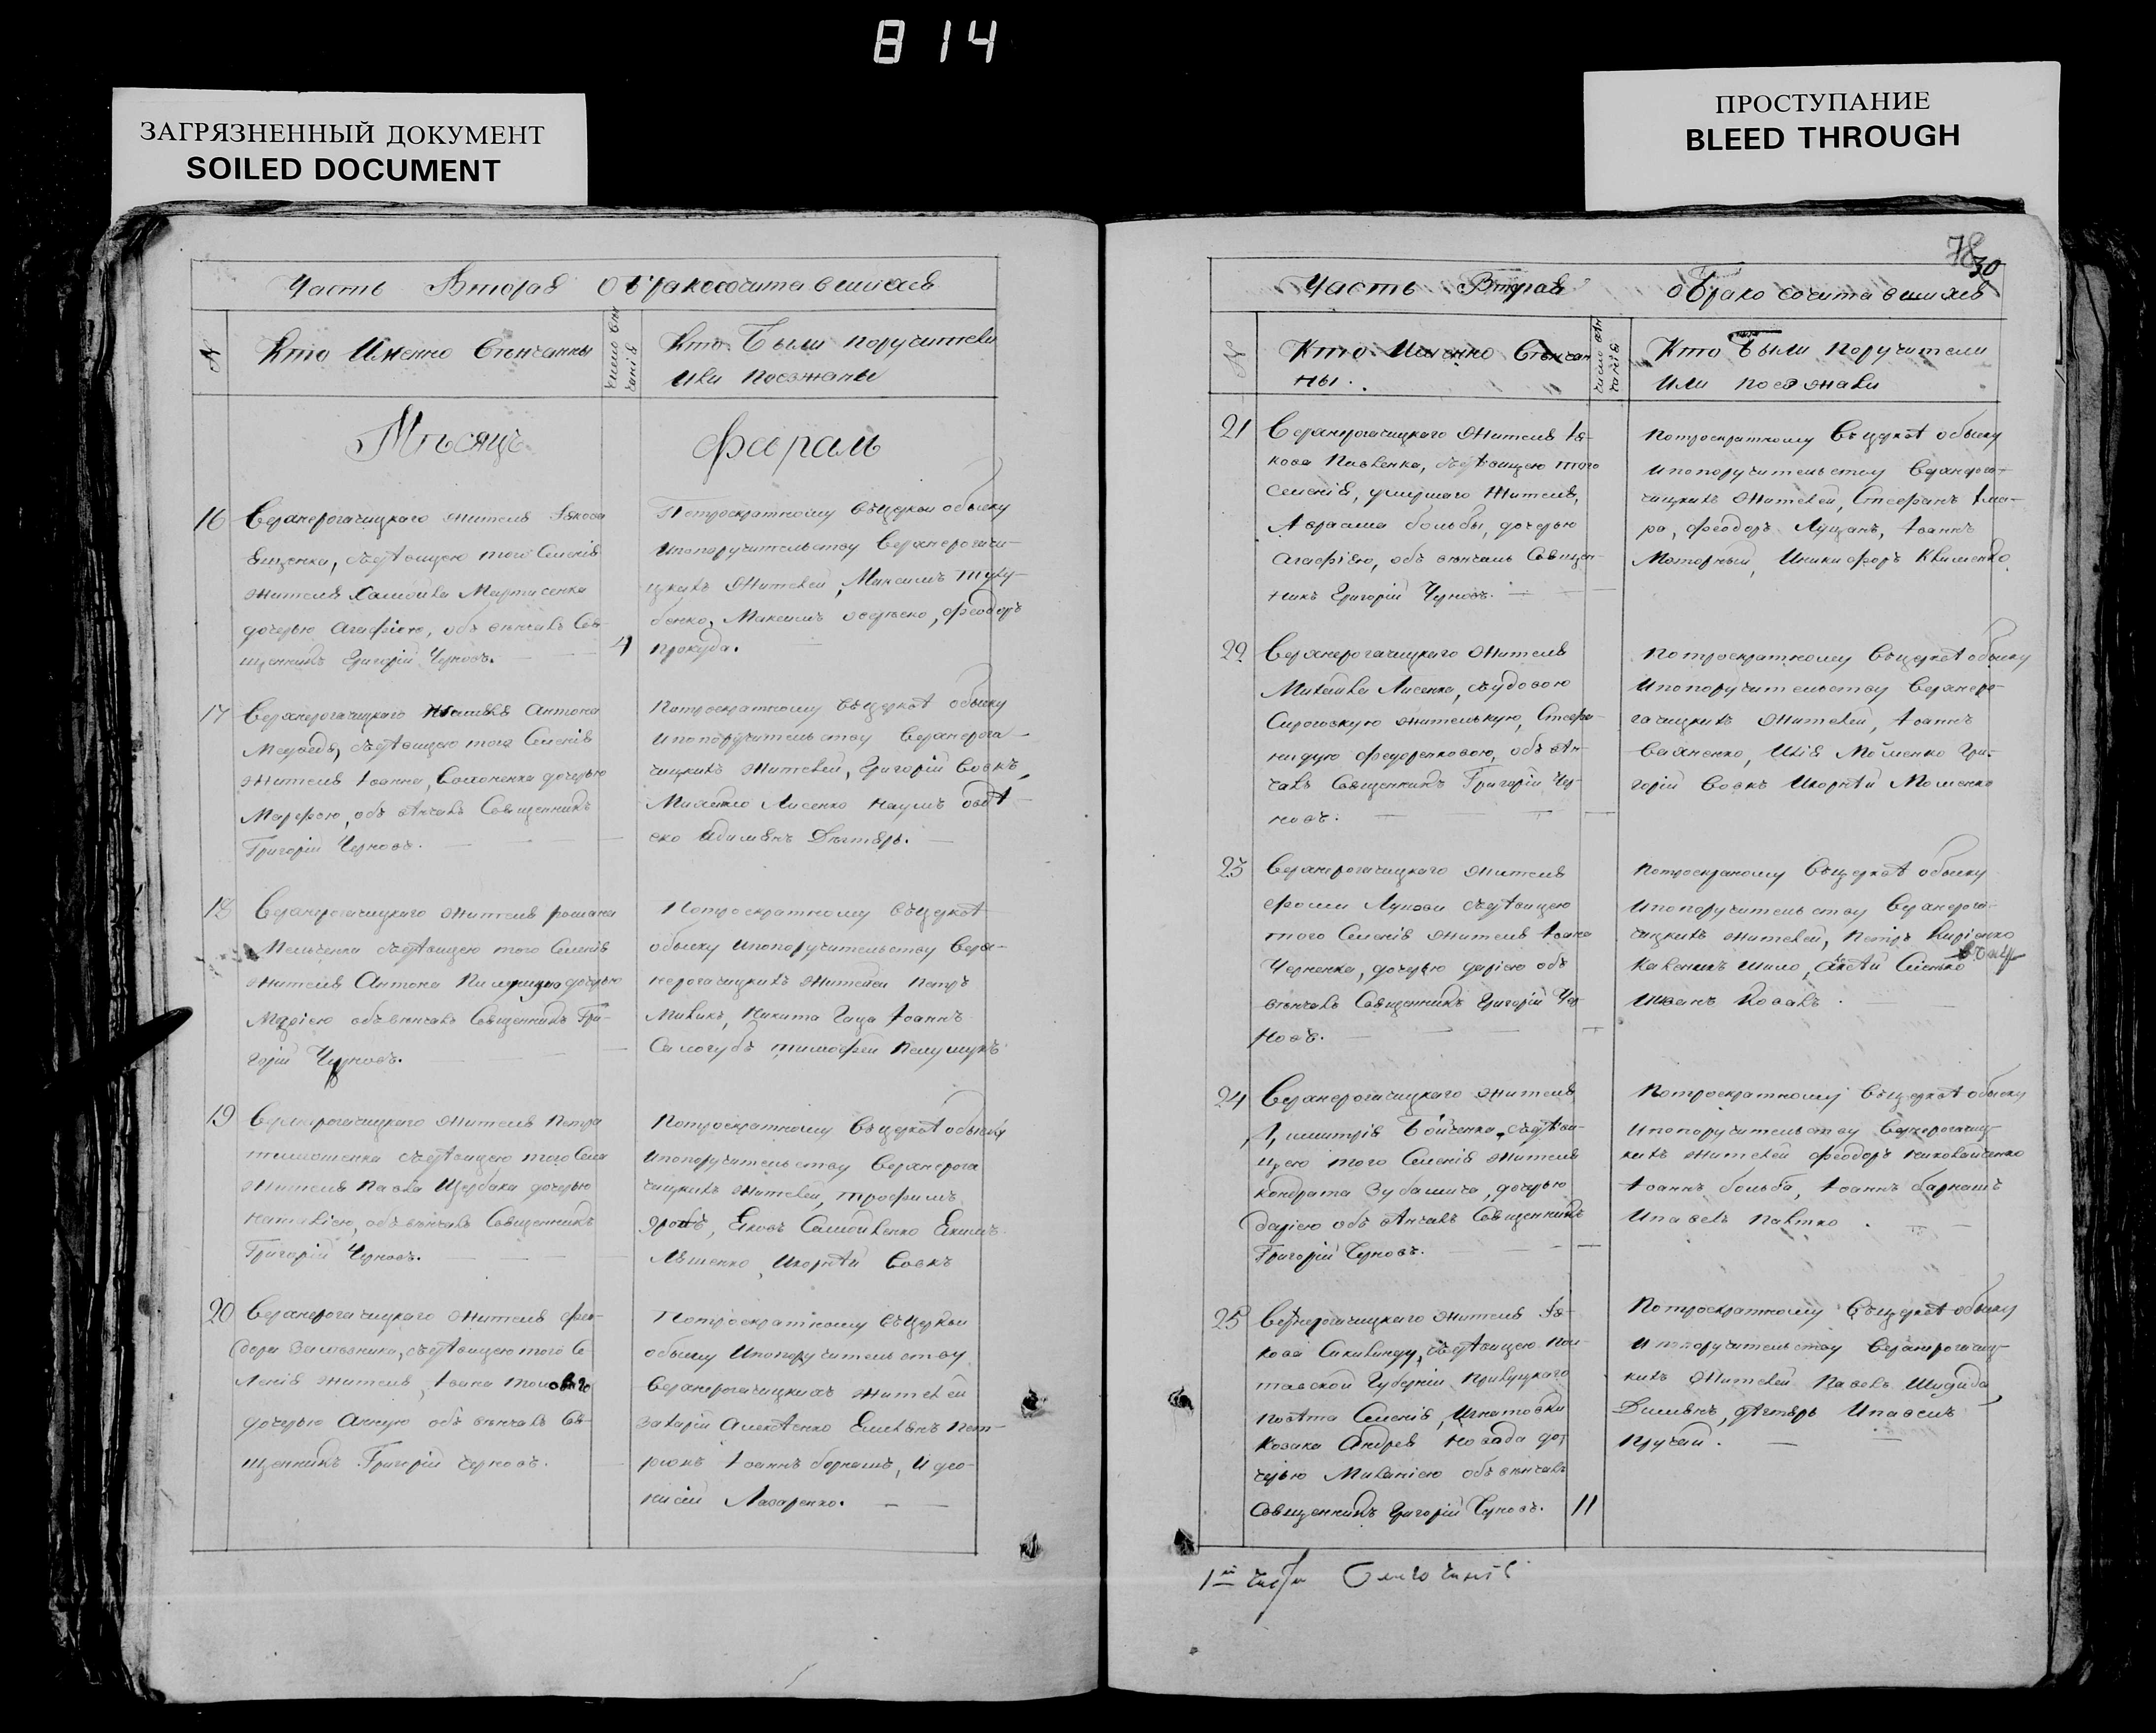 814
ЗАГРЯЗНЕННЫЙ ДОКУМЕНТ
SOILED DOCUMENT
ПРОСТУПАНИЕ
BLEED THROUGH
Часть Вторая О бракосочитавшихся
№
Кто Именно Венчанны
число вѣн
чанія
Кто Были поручители
или поезжаны
Мѣсяцъ Февраль
16
Верхнерогачицкаго жителя Якова
Ященка, съдѣвицею того Селенія
жителя Самойла
дочерью Агафіею, объ вѣнчалъ Свя-
щенникъ Григорій Черновъ.
4
Потроекратному Въцеркви обыску
ипопоручительству Верхнерогачи-
цкихъ Жителей, Максимъ
бенко, Максимъ, Феодоръ
прокуда.
17
Верхнерогачицкаго Антона
Медведя, съдѣвицею того Селенія
жителя Іоанна, дочерью
Марфою, объ вѣнчалъ Священникъ
Григорій Черновъ.
Потроекратному Въцеркве обыску
ипопоручительству Верхнерога-
чицкихъ жителей, Григорій Вовкъ,
Михайло Лисенко Наумъ
Дегтярь.
18
Верхнерогачицкаго жителя романа
Мельченка съдѣвицею того Селенія
жителя Антона дочерью
Маріею объвѣнчалъ Священникъ Гри-
горій Черновъ.
Потроекратному Въцеркве
обыску ипопоручительству Верх-
нерогачицкихъ жителей Петръ
Никита Гаца Іоаннъ
Самогубъ тимофей
19
Верхнерогачицкаго жителя Петра
тимошенка съдѣвицею того Селе
жителя Павла Щербака дочерью
Наталіею, объвѣнчалъ Священникъ
Григорій Черновъ.
Потроекратному Въцеркве обыску
ипопоручительству Верхнерога
чицкихъ жителей, трофимъ
Яковъ Самойленко Якимъ
Ляшенко, Икорнѣй Вовкъ
20
Верхнерогачицкаго жителя Фео-
дора съдѣвицею того Се-
ленія жителя, Іоана
дочерью Анною объ вѣнчалъ Свя-
щенникъ Григорій Черновъ.
Потроекратному Въцеркви
обыску Ипопоручительству
Верхнерогачицкихъ жителей
захарій Алексѣенко Емельянъ Пет-
рюкъ Іоаннъ барнашъ, И део-
нисій Лазаренко.
78
30
Часть Вторая О Бракосочитавшихся
№
Кто Именно Венчан
ны.
число вѣн
чанія
Кто Были Поручители
или поезжаны
21
Верхнерогачицкаго Жителя Я-
кова Павленка, съдѣвицею того
Селенія, умершаго Жителя,
Авраама больбы, дочерью
Агафіею, объ вѣнчалъ Священ-
никъ Григорій Черновъ.
Потроекратному Въцеркве обыску
ипопоручительству Верхнерога-
чицкихъ Жителей, Стефанъ
Феодоръ Лущанъ, Іоаннъ
Моторный, Иникифоръ Клименко.
22
Верхнерогачицкаго Жителя
Михайла Лисенка, съвдовою
Сирогозскую жителькую, Стефа-
нидую Федоренковою, объ вѣн-
чалъ Священникъ Григорій Чер-
новъ.
Потроекратному Въцеркве обыску
Ипопоручительству Верхнеро-
гачицкихъ Жителей, Іоаннъ
Ваxненко, Илія Мойсенко Гри-
горій Вовкъ Икорнѣй Моисенко
23
Верхнерогачицкаго Жителя
Фомы съдѣвицею
того Селенія Жителя Іоана
Черненка, дочерью даріею объ
вѣнчалъ Священникъ Григорій Чер-
новъ.
Потроекраному Въцеркве обыску
Ипопоручительству Верхнерога-
чицкихъ жителей, Петръ Киріенко
Шило,
Иванъ Козакъ.
24
Верхнерогачицкаго жителя
Дмитрія Бойченка, съдѣви-
цею того Селенія жителя
Кондрата дочерью
даріею объ вѣнчалъ Священникъ
Григорій Черновъ.
Потроекратному Въцеркве обыску
ипопоручительству Верхнерогачиц-
кихъ жителей Феодоръ Николайченко
Іоаннъ больба, Іоаннъ барнашъ
Ипавелъ Павлко.
25
Верхнерогачицкаго жителя Я-
кова съдѣвицею Пол-
тавской Губерніи Прилуцкаго
повѣта Селенія, Игнатовки
Козака Андрея дор
черью Меланіею объвѣнчалъ
Священникъ Григорій Черновъ.
11
Потроекратному Въцеркве обыску
Ипопоручительству Верхнерогачиц-
кихъ Жителей Павелъ
Демьянъ, дѣгтярь Ипавелъ
Пручай.